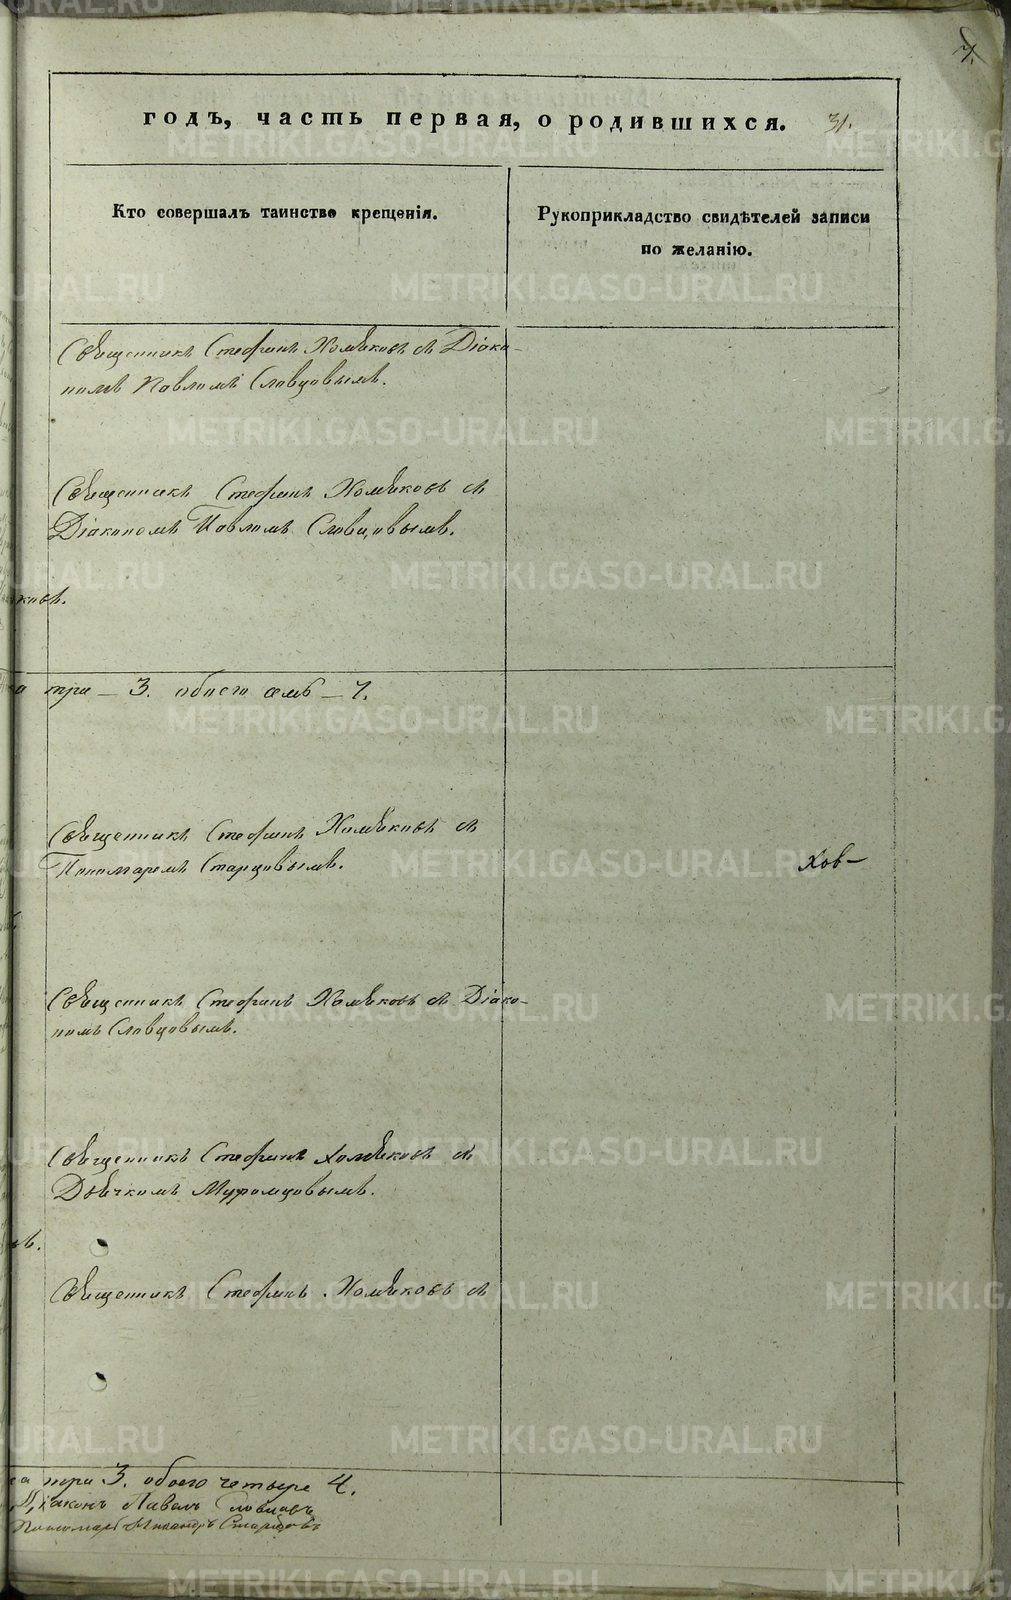 7.
годъ, часть первая, о родившихся. 31.
Кто совершалъ таинство крещенія.
Рукоприкладство свидѣтелей записи
по желанію.
Священникъ Стефанъ Хомяковъ съ Діако-
номъ Павломъ Словцовымъ.
Священникъ Стефанъ Хомяковъ съ
Діакономъ Павломъ Словцовымъ.
ковъ.
а три — 3. обоего семь — 7.
Священникъ Стефанъ Хомяковъ съ
Пономаремъ Старцовымъ.
Хов-
Священникъ Стефанъ Хомяковъ съ Діако-
номъ Словцовымъ.
Священникъ Стефанъ Хомяковъ съ
Дьячкомъ Муромцовымъ.
въ.
Священникъ Стефанъ Хомяковъ съ
са три 3. обоего четыре 4.
Діаконъ Павелъ Словцовъ
Пономарь Старцовъ
METRIKI.GASO-URAL.RU